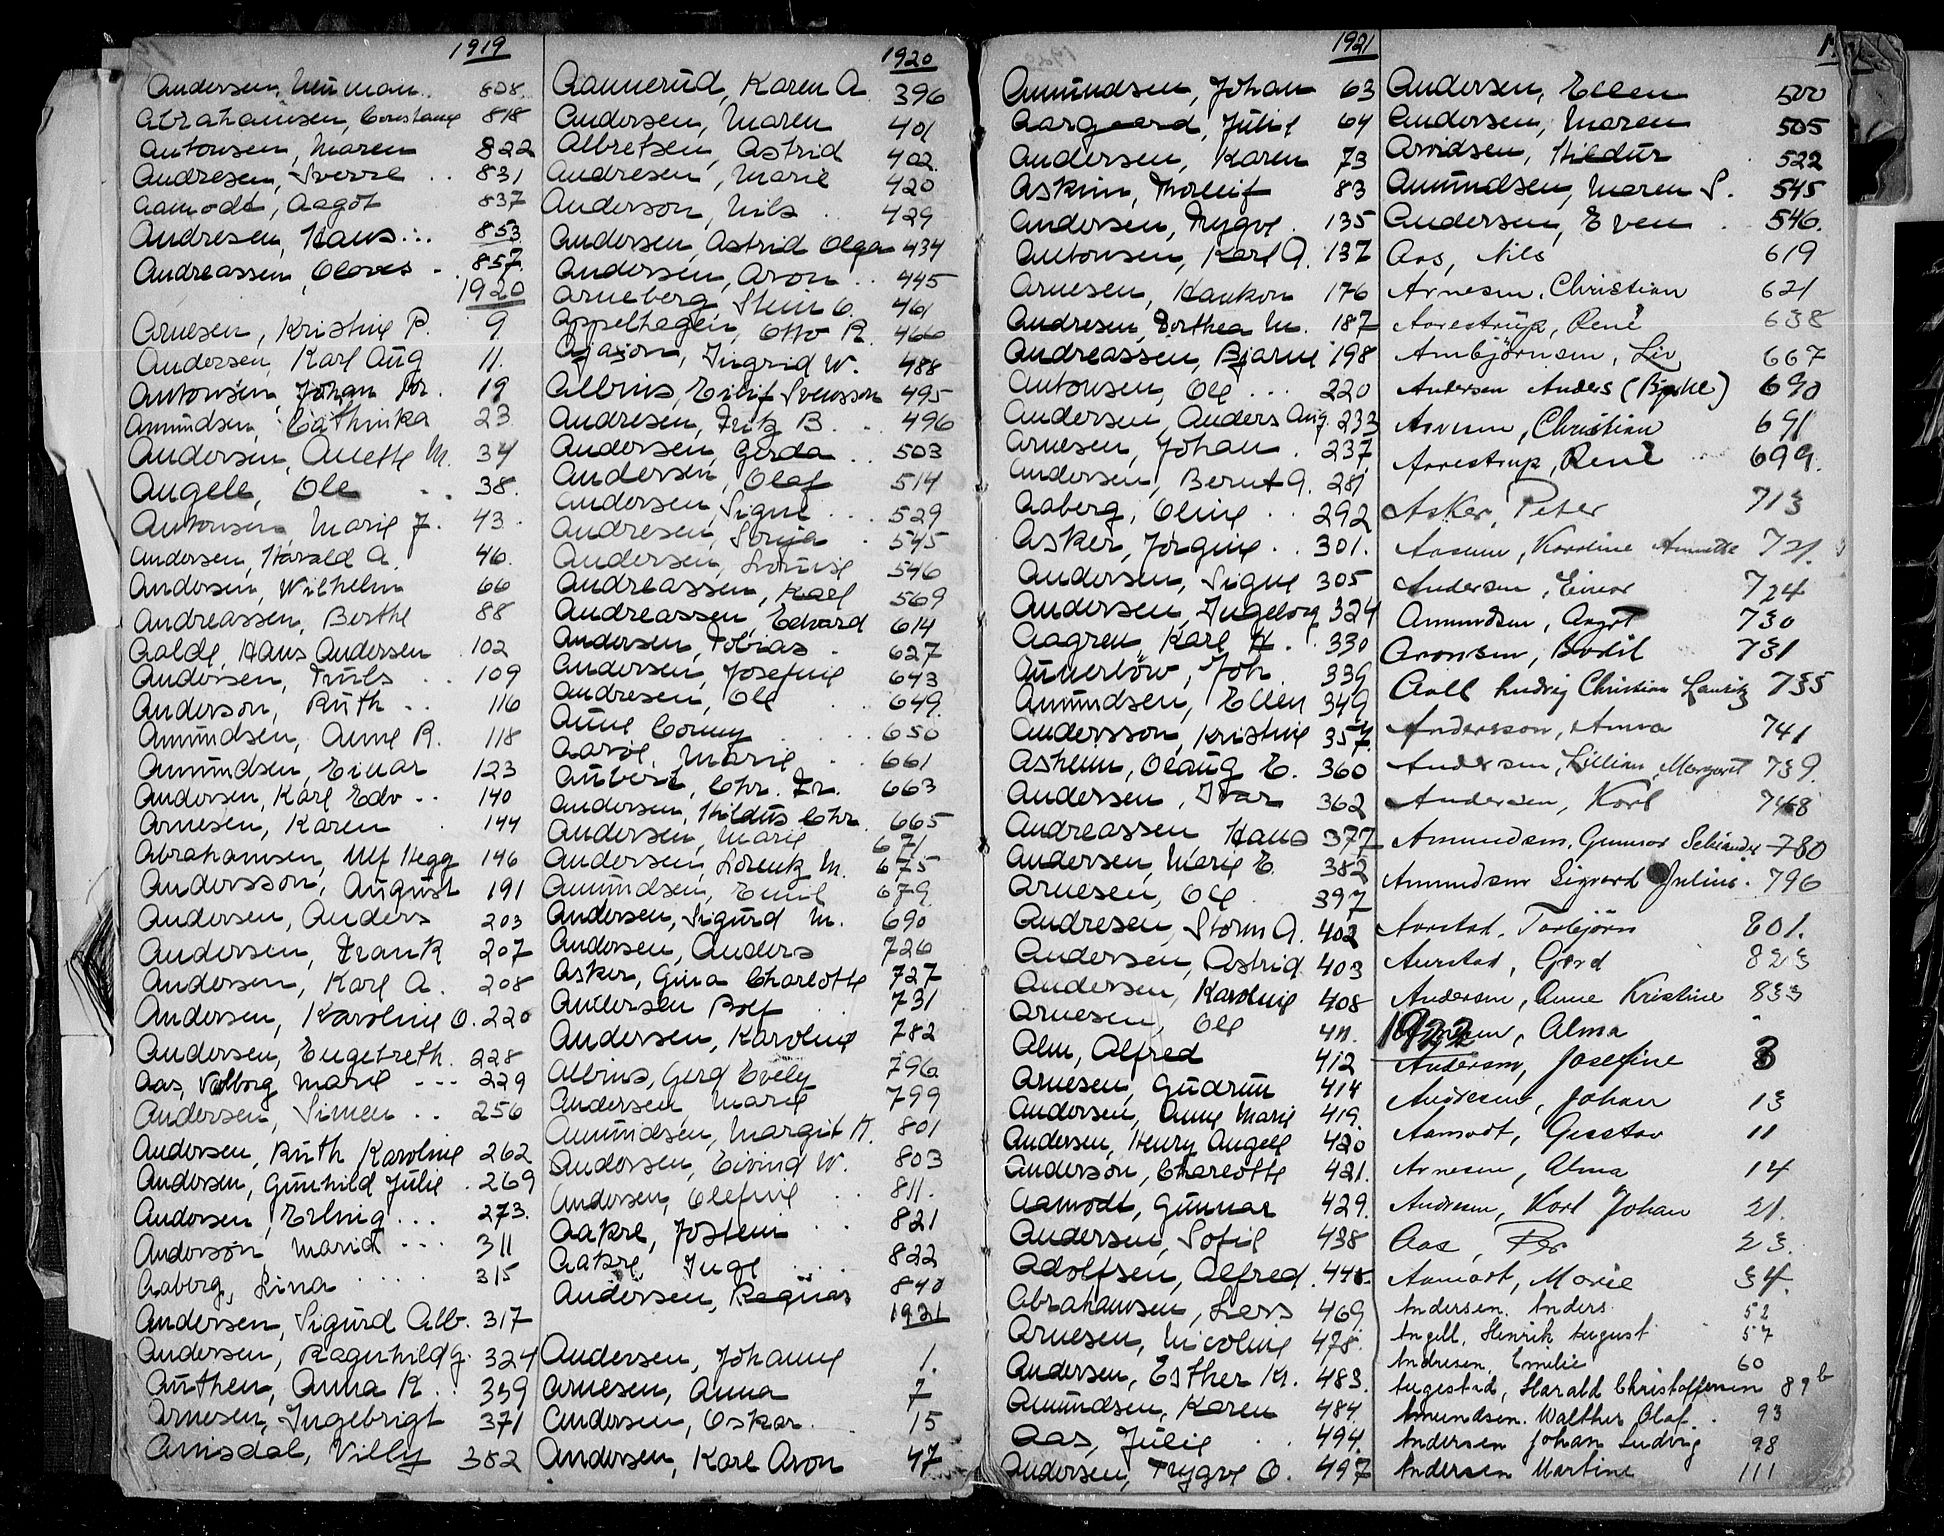 1919
Andersen, Herman 808
Abrahamsen, Constance 818
Antonsen, Maren 822
Andresen, Sverre 831
Aamodt, Aagot 837
Andresen, Hans 853
Andreassen, Oloves 857
1920
Arnesen, Kristine P. 9
Andersen, Karl Aug 11.
Antonsen, Johan Kr. 19
Amundsen, Cathinka 23
Andersen, Anette M. 34
Angell, Ole 38.
Antonsen, Marie J. 43
Andersen, Harald A. 46
Andersen, Wilhelm 66
Andreassen, Berthe 88
Aalde, Hans Andersen 102
Andersen, Truls 109
Anderson, Ruth 116
Amundsen, Anne R. 118
Amundsen, Einar 123
Andersen, Karl Edv 140
Arnesen, Karen 144
Abrahamsen, Ulf Hegg 146
Andersson, August 191
Andersen, Anders 203
Andersen, Frank 207
Andersen, Karl A. 208
Andersen, Karoline O. 220
Andersen, Engebreth. 228
Aas, Valborg Marie 229
Andersen, Simen 256
Andersen, Ruth Karoline 262
Andersen, Gunhild Julie 269
Andersen, Erling 273.
Anderson Maria 311
Aaberg, Lina 315
Andersen, Sigurd Alb. 317
Andersen, Ragnhild J. 324
Authen, Anna K. 359
Arnesen, Ingebrigt 371
Arnsdal, Villy 382
1920
Aannerud, Karen A. 396
Andersen, Maren 401
Albretsen, Astrid 402
Andresen, Marie 420
Anderson, Nils 429
Andersen, Astrid Olga 434
Andersen, Aron 445
Arneberg, Stein O. 461
Appelhagen, Otto R. 466
Ajaxon, Ingrid W. 488
Albins, Eilif Svensson 495
Andresen, Fritz B. 496
Andersen, Gerda 503
Andersen, Olaf 514
Andersen, Signe 529
Andresen, Sonja 545
Andersen, Lovise 546
Andreassen, Karl 569
Andreassen, Edvard 614
Andersen, Tobias 627
Andersen, Josefine 643
Andresen, Ole 649.
Aune Conny 650
Aarøe, Marie 661
Aubert, Chr. Fr. 663
Andersen, Hildus Chr. 665
Andersen, Marie 671
Andersen, Lorentz M. 675
Amundsen, Emil 679.
Andersen, Sigurd M. 690
Andersen, Anders 726
Asker, Gina Charlotte 727
Andersen Rolf 731
Andersen, Karoline 782
Albins, Gerd Evely 796
Andersen, Marie 799
Amundsen, Margit H. 801
Andersen, Eivind W. 803
Andersen, Olefine 811.
Aakre, Jostein 821
Aakre, Inge 822
Andersen, Ragnar 840
1921
Andersen, Johanne 1.
Arnesen, Anna 7
Andersen, Oskar 15
Andersen, Karl Aron 47
1921
Amundsen, Johan 63
Aargaard, Julie 64
Andersen, Karen 73
Askim, Thorleif 83
Andersen, Trygve 135
Antonsen, Karl A. 137
Arnesen, Haakon 176
Andresen, Dorthea M. 187
Andreassen, Bjarne 198
Antonsen, Ole 220
Andersen, Anders Aug. 233
Arnesen, Johan 237
Andersen, Bernt A. 281
Aaberg, Oline 292
Asker, Jørgine 301.
Andersen, Signe 305
Andersen, Ingeborg 324
Aagren, Karl H. 330
Aunerløw, Joh 339
Amundsen, Ellen 349
Andersson, Kristine 357.
Asheim, Olaug E. 360
Andersen, Ivar 362
Andreassen Hans 377
Andersen, Marie E. 382
Arnesen, Ole 397
Andresen, Storm A. 402
Andersen, Astrid 403
Andersen, Karoline 408
Arnesen, Ole 411.
Alm, Alfred 412
Arnesen, Gudrun 414
Andersen, Anne Marie 419.
Andersen, Henry Angell 420
Anderson, Charlotte 421.
Aamodt, Gunnar 429.
Andersen, Sofie 438
Adolfsen, Alfred 445.
Abrahamsen, Lars 469
Arnesen, Nicoline 478.
Andersen, Esther M. 483.
Amundsen, Karen 484.
Aas, Julie 494.
Andersen, Trygve O. 497
Andersen, Ellen 500
Andersen, Maren 505
Arvidsen, Hildur 522
Amundsen, Maren S. 545
Andersen, Even 546.
Aas, Nils 619
Arnesen, Christian 621
Aarestrup, René 638
Ambjörnsen, Liv 667
Andersen Anders 690
Arnesen, Christian 691
Aarestrup, René 699.
Asker, Peter 713
Aasum, Karoline Annette 721.
Andersen, Einar 724
Amundsen, Aagot 730
Aronsen, Bodil 731
Aall Ludvig Christian Lauritz 735
Andersson, Anna 741
Andersen, Lillian Margaret 739.
Andersen, Karl 748
Amundsen, Gunnar 780
Amundsen Sigvard Julius. 796
Aarstad, Torbjörn 801.
Aurstad, Gerd 823
Andersen, Anne Kristine 833
1922
Alma
Andersen, Josefine 3
Andresen, Johan 13
Aamodt, Gustav 11
Arnesen, Alma 14
Andresen, Karl Johan 21.
Aas, Per 23.
Aamodt, Marie 34.
Andersen. Anders. 52
Angell, Henrik August 57
Andresen, Emilie 60
Augestad, Harald Christoffersen 89b
Amundsen. Walther Olaf. 93
Andersen Johan Ludvig 98
Andersen Martine 111